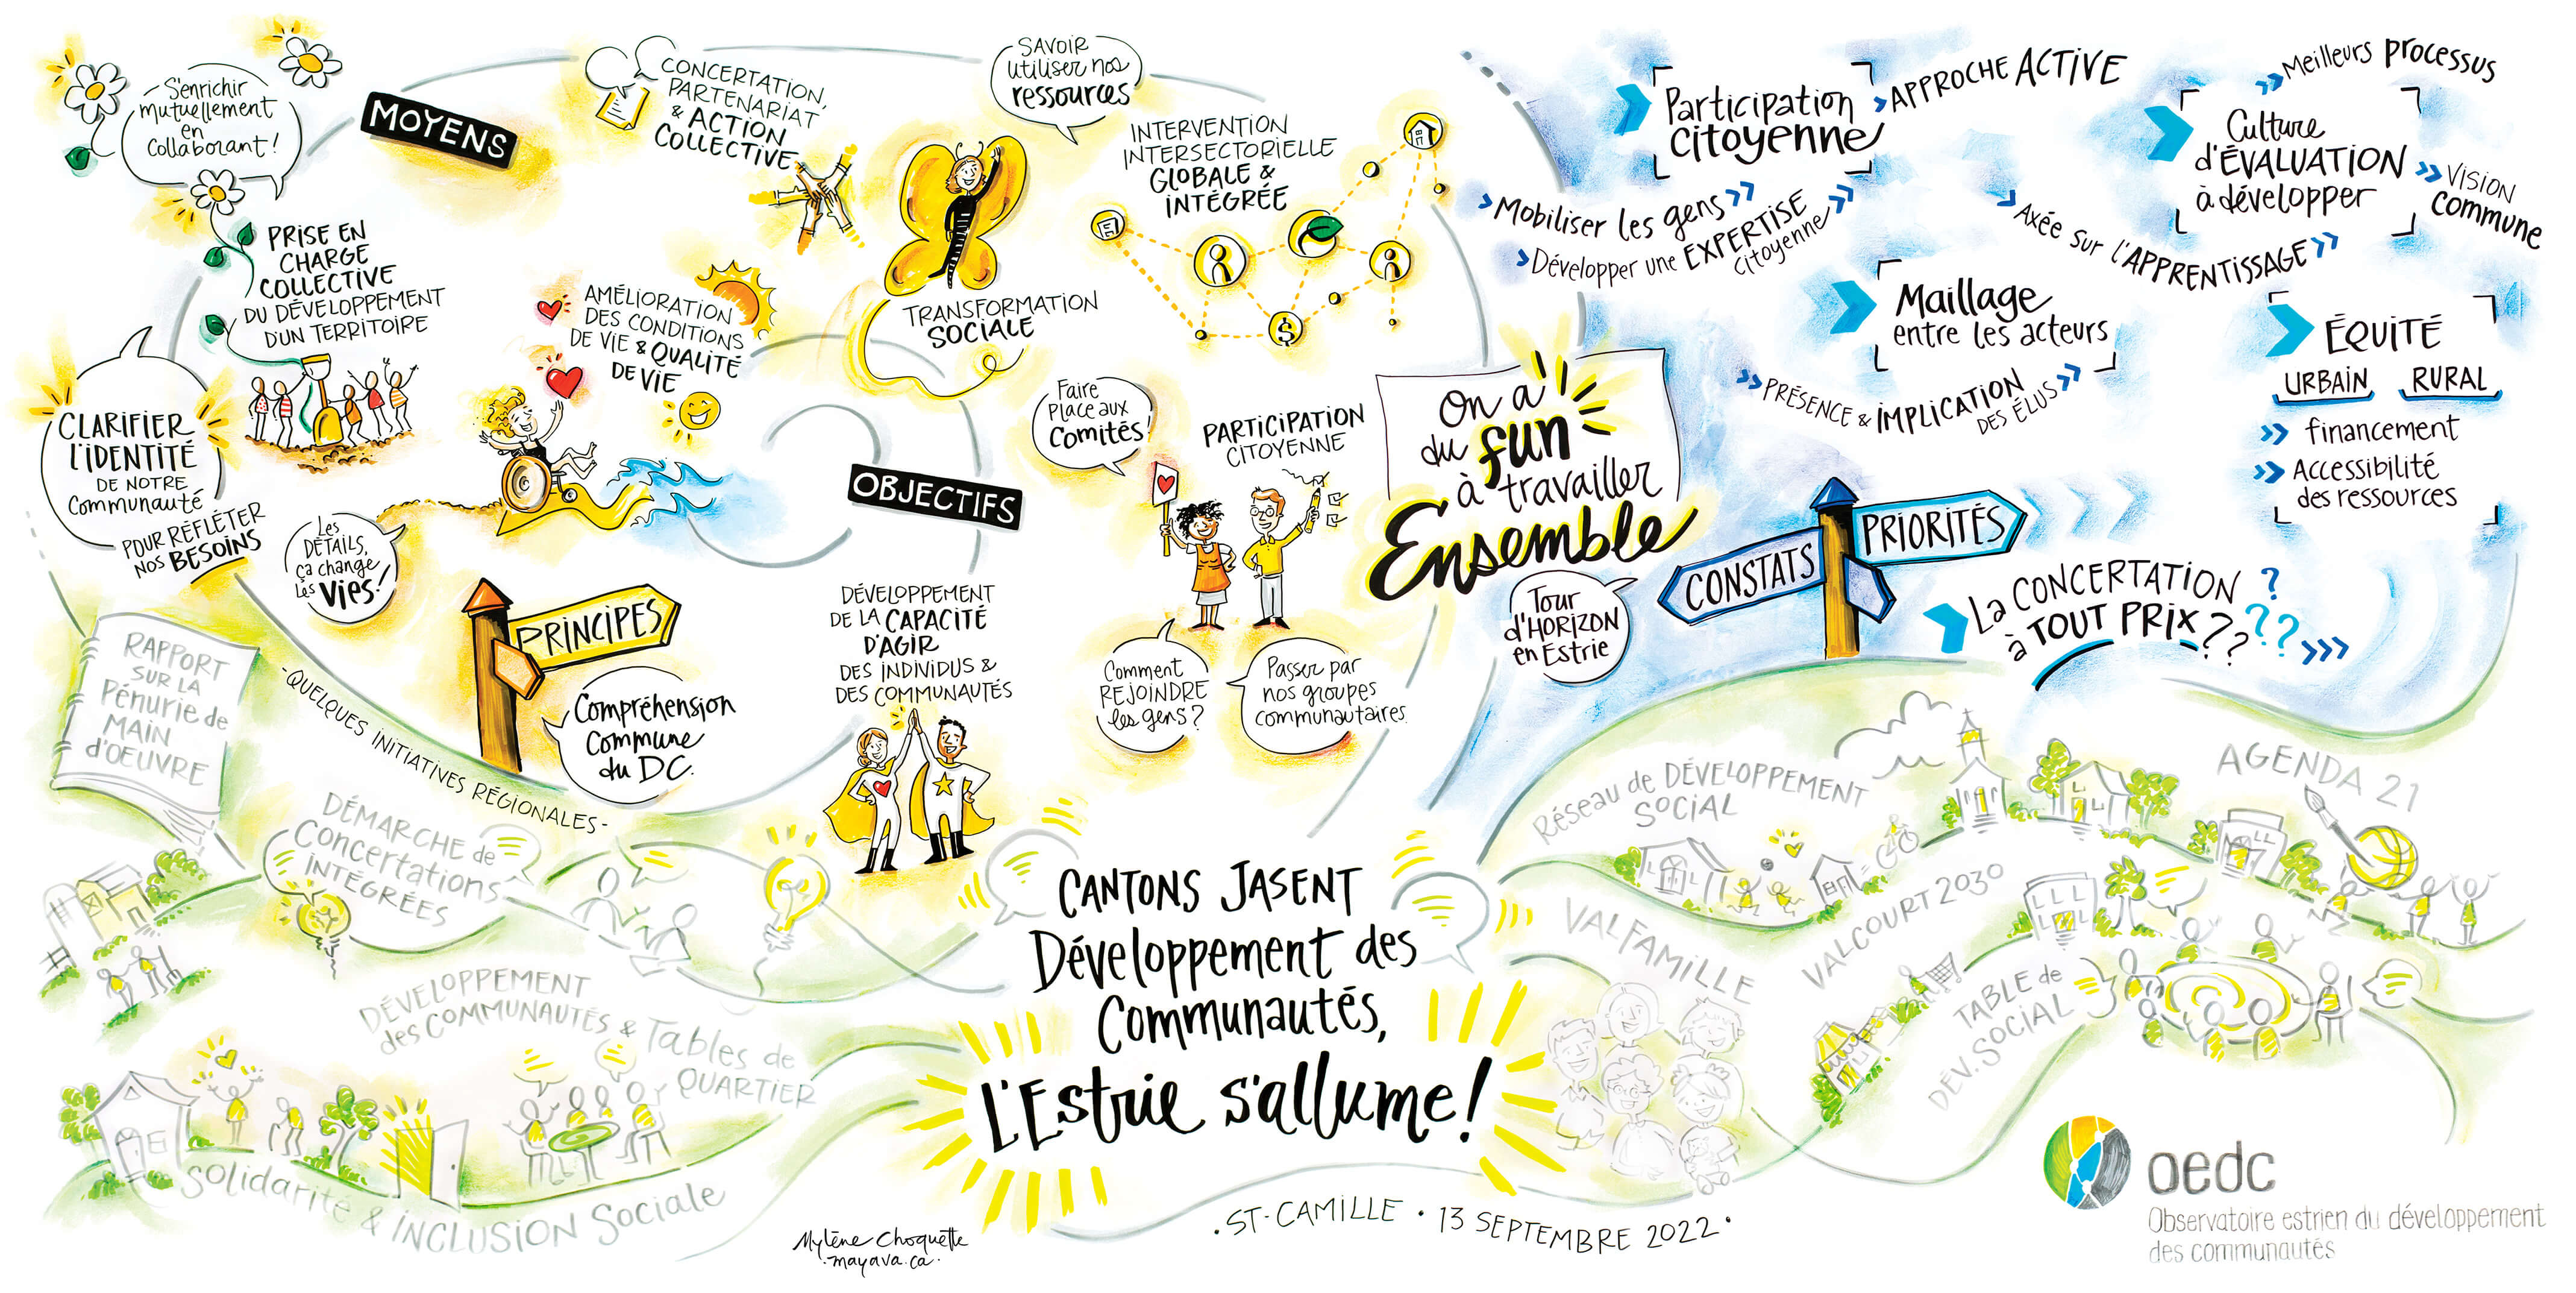 S'enrichir
mutuellement
en
collaborant!
MOYENS
CONCERTATION,
PARTENARIAT
& ACTION
COLLECTIVE
SAVOIR
utiliser nos
ressources
INTERVENTION
INTERSECTORIELLE
GLOBALE &
INTÉGRÉE
PRISE EN
CHARGE
COLLECTIVE
DU DÉVELOPPEMENT
D'UN TERRITOIRE
AMÉLIORATION
DES CONDITIONS
DE VIE & QUALITÉ
DE VIE
TRANSFORMATION
SOCIALE
$
CLARIFIER
L'IDENTITÉ
DE NOTRE
Communauté
POUR RÉFLÉTER
NOS BESOINS
Les
DÉTAILS,
ça change
les vies!
OBJECTIFS
Faire
Place aux
Comités!
PARTICIPATION
CITOYENNE
PRINCIPES
Compréhension
Commune
du DC.
DÉVELOPPEMENT
DE LA CAPACITÉ
D'AGIR
DES INDIVIDUS &
DES COMMUNAUTÉS
Comment
REJOINDRE
les gens?
Passer par
nos groupes
communautaires
On a
du fun
à travailler
Ensemble
Participation
citoyenne
APPROCHE ACTIVE
Mobiliser les gens
Développer une EXPERTISE
citoyenne
Meilleurs processus
Culture
d'ÉVALUATION
à développer
VISION
commune
Axée sur l'APPRENTISSAGE
Maillage
entre les acteurs
PRÉSENCE & IMPLICATION
DES ÉLUS
ÉQUITÉ
URBAIN RURAL
financement
Accessibilité
des ressources
Tour
d'HORIZON
en Estrie
CONSTATS
PRIORITÉS
La CONCERTATION ?
à TOUT PRIX ?? ??
RAPPORT
SUR LA
Pénurie de
MAIN
d'OEUVRE
- QUELQUES INITIATIVES RÉGIONALES -
DÉMARCHE de
Concertations
INTÉGRÉES
DÉVELOPPEMENT
des COMMUNAUTÉS & Tables de
QUARTIER
Solidarité & INCLUSION Sociale
CANTONS JASENT
Développement des
Communautés,
L'Estrie s'allume!
Réseau de DÉVELOPPEMENT
SOCIAL
AGENDA 21
VALFAMILLE
VALCOURT 2030
TABLE de
DÉV. SOCIAL
Mylène Choquette
.mayava.ca.
• ST-CAMILLE • 13 SEPTEMBRE 2022 •
oedc
Observatoire estrien du développement
des communautés